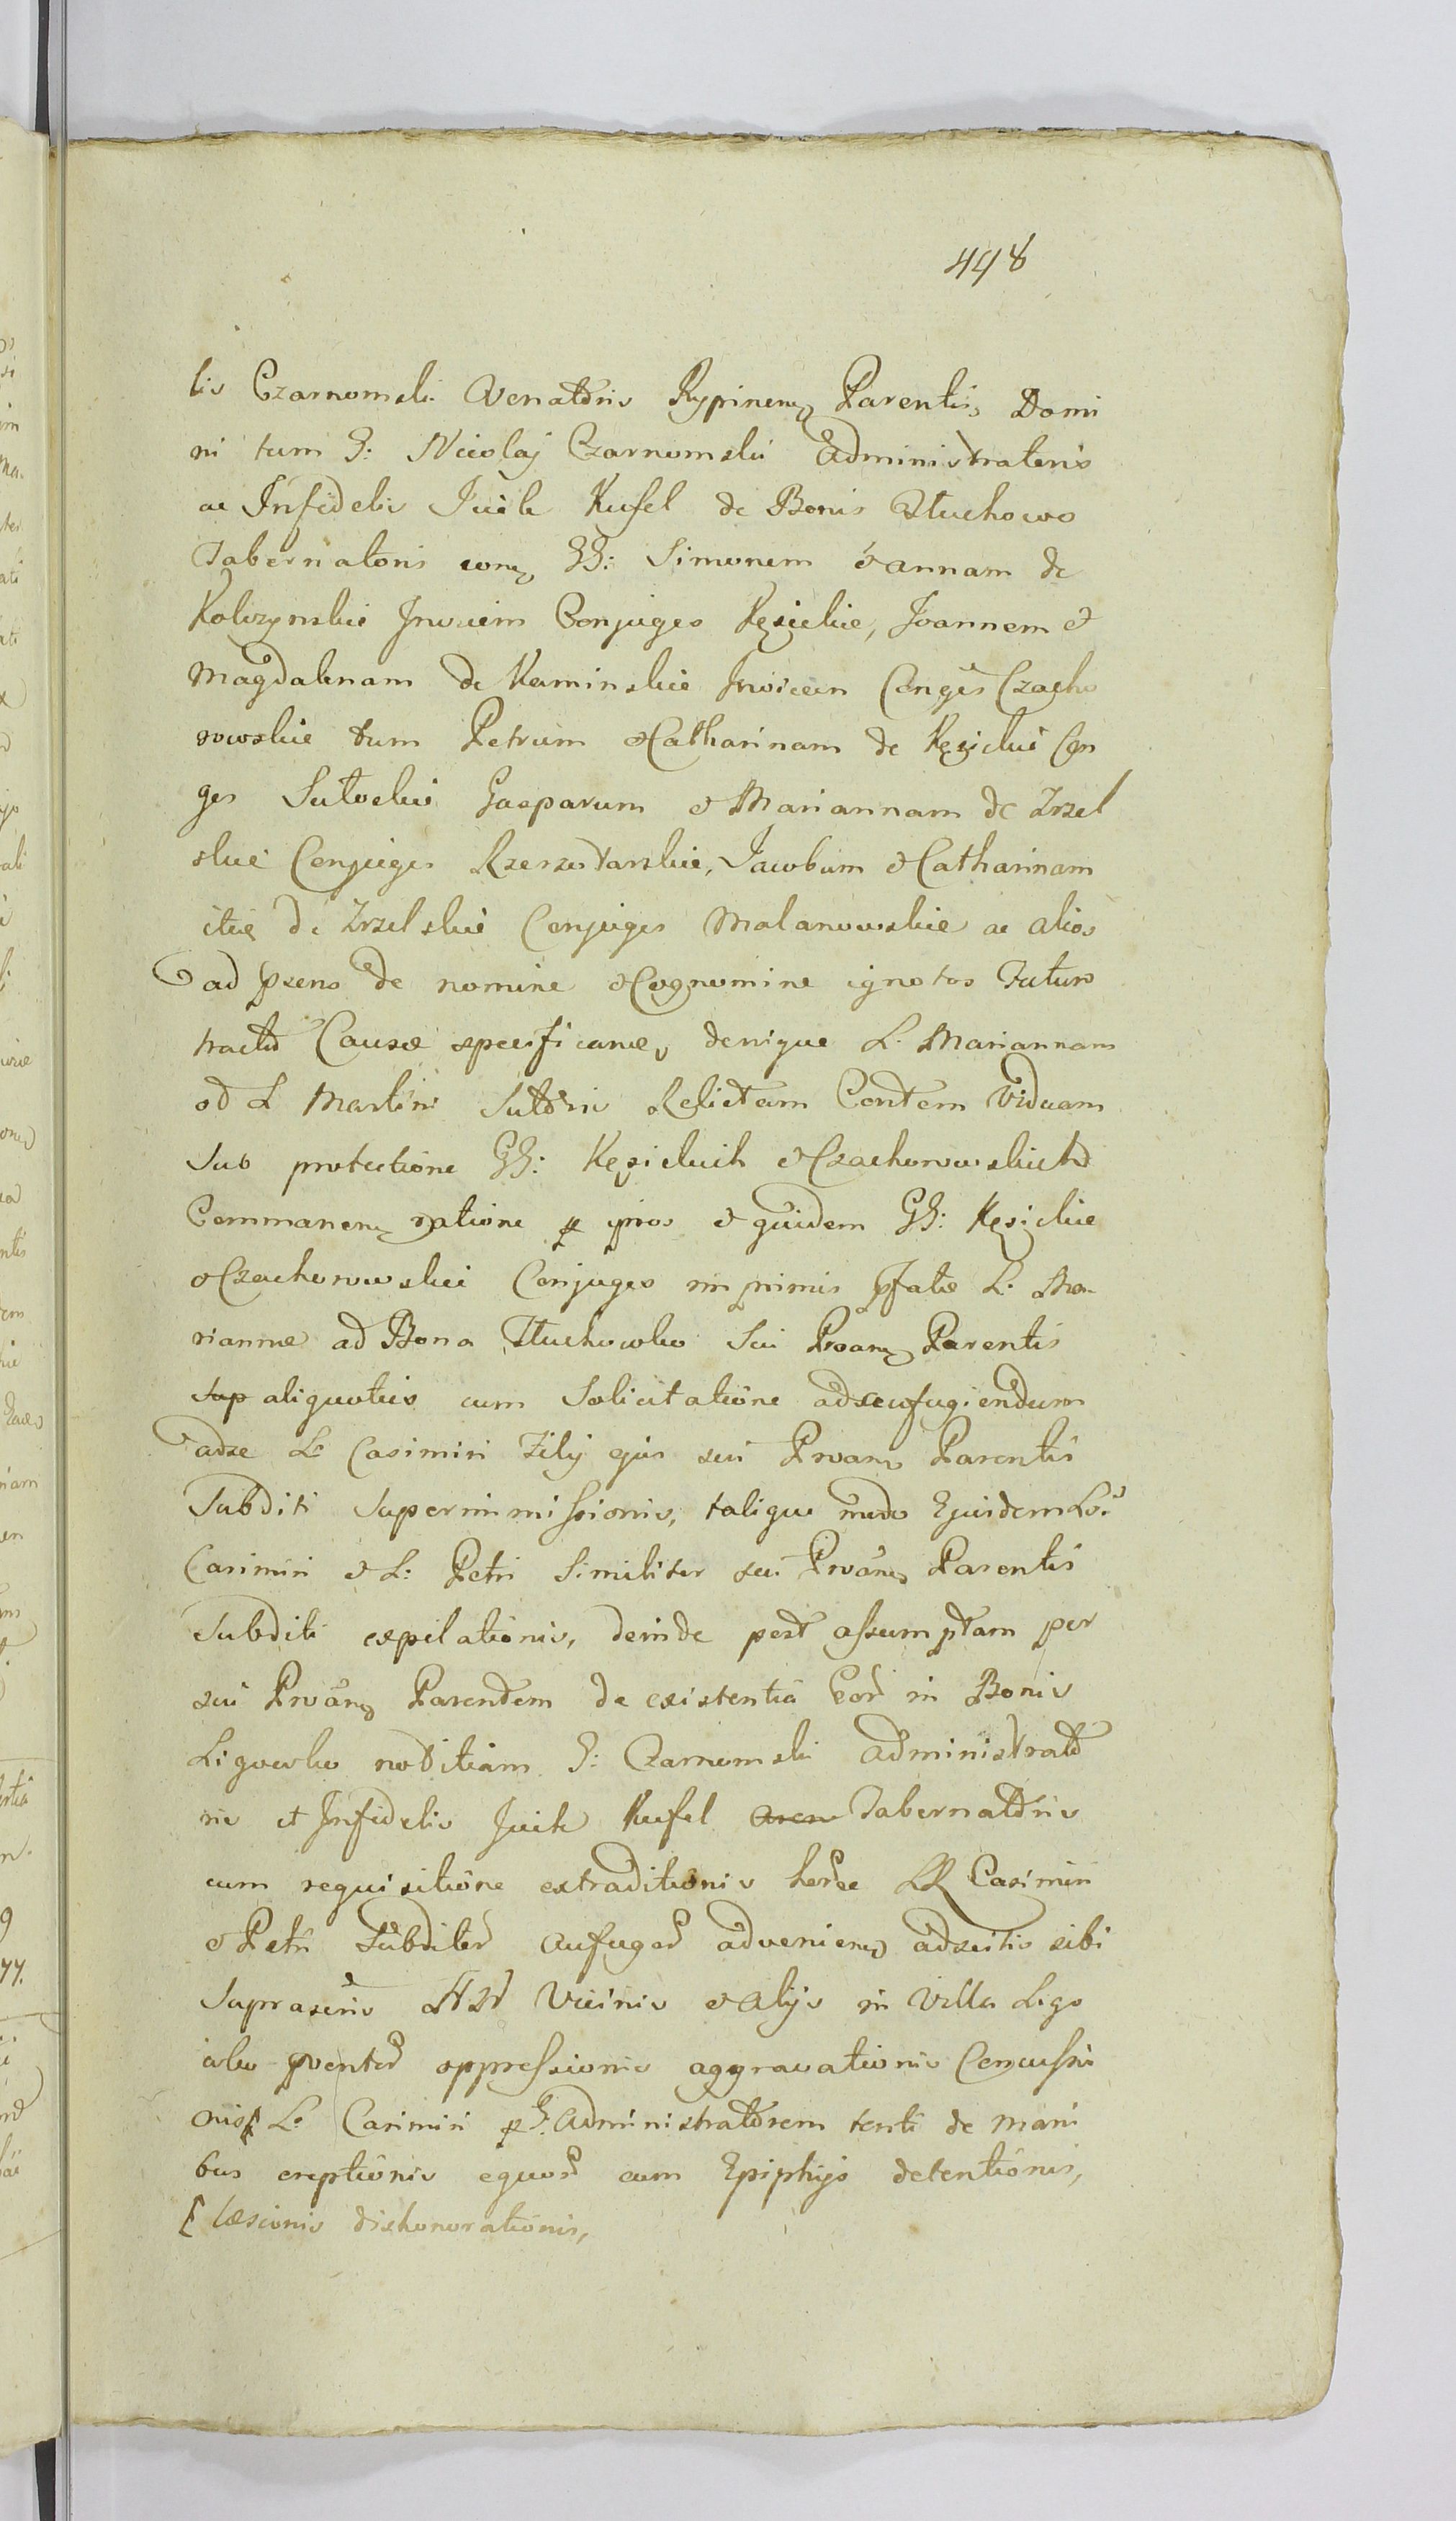 448
lis Czarnomski Venatoris Rypinens Parentis, Domi
ni tum G: Nicolaj Czarnomski Administratoris
ac Infidelis Jcik Kufel de Bonis Tłuchowo
Tabernatoris cont GG: Simonem et Annam de
Kolczynskie Invicem Conjuges Kęsickie, Joannem et
Magdalenam de Kaminskie Invicem Conges Czacho
rowskie tum Petrum et Catharinam de Kęsickie Con
ges Sutockie Gasparum et Mariannam de Zrzel
skie Conjuges Rzeszotarskie, Jacobum et Catharinam
itię de Zrzelskie Conjuges Malanowskie ac alios
ad psens de nomine et Cognomine ignotos Futuro
tractu Causæ specificand, denique L. Mariannam
od L Martini Sutoris Relictam Contem Viduam
Sub protectione GG: Kęsickich et Czachorowskich
Commanen ratione p ipsos et quidem GG: Kęsickie
et Czachorowskie Conjuges in primis pfatæ L. Ma-
riannæ ad Bona Tłuchowko Sui Proans Parentis
aliquoties cum Solicitatione ad aufugiendum
adse L. Casimiri Filij ejus sui Proans Parentis
Subditi Superimmissionis, talique modo Ejusdem L.
Casimiri et L: Petri Similiter sui Proans Parentis
Subditi expilationis, deinde post assumptam per
sui Proans Parentem de existentia Eor in Bonis
Ligowko notitiam G: Czarnomski Administrato
ris et Infidelis Jcik Kufel Tabernatoris
cum requisitione extraditionis horce LL Casimiri
et Petri Subditor aufugor adveniens adscitis sibi
Suprascris Vicinis et Alijs in Villa Ligo
wko pventor oppressionis aggravationis Concussi
onis L. Casimiri p G. Administratorem tenti de mani
bus ereptionis equor cum Epiphijs detentionis,
læsionis dishonorationis,